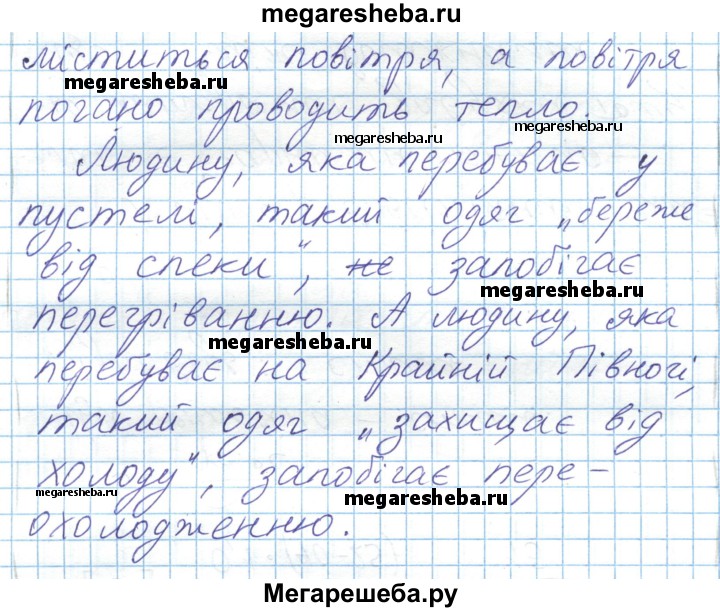 megaresheba.ru
міститься повітря, а повітря
megaresheba.ru
погано проводить тепло.
megaresheba.ru
Людину, яка перебуває у
пустелі, такий одяг „береже
від спеки“, не запобігає
megaresheba.ru
перегріванню. А людину, яка
megaresheba.ru
перебуває на Крайній Півночі,
такий одяг „захищає від
холоду“, запобігає пере-
megaresheba.ru
megaresheba.ru
охолодженню.
Мегарешеба.ру